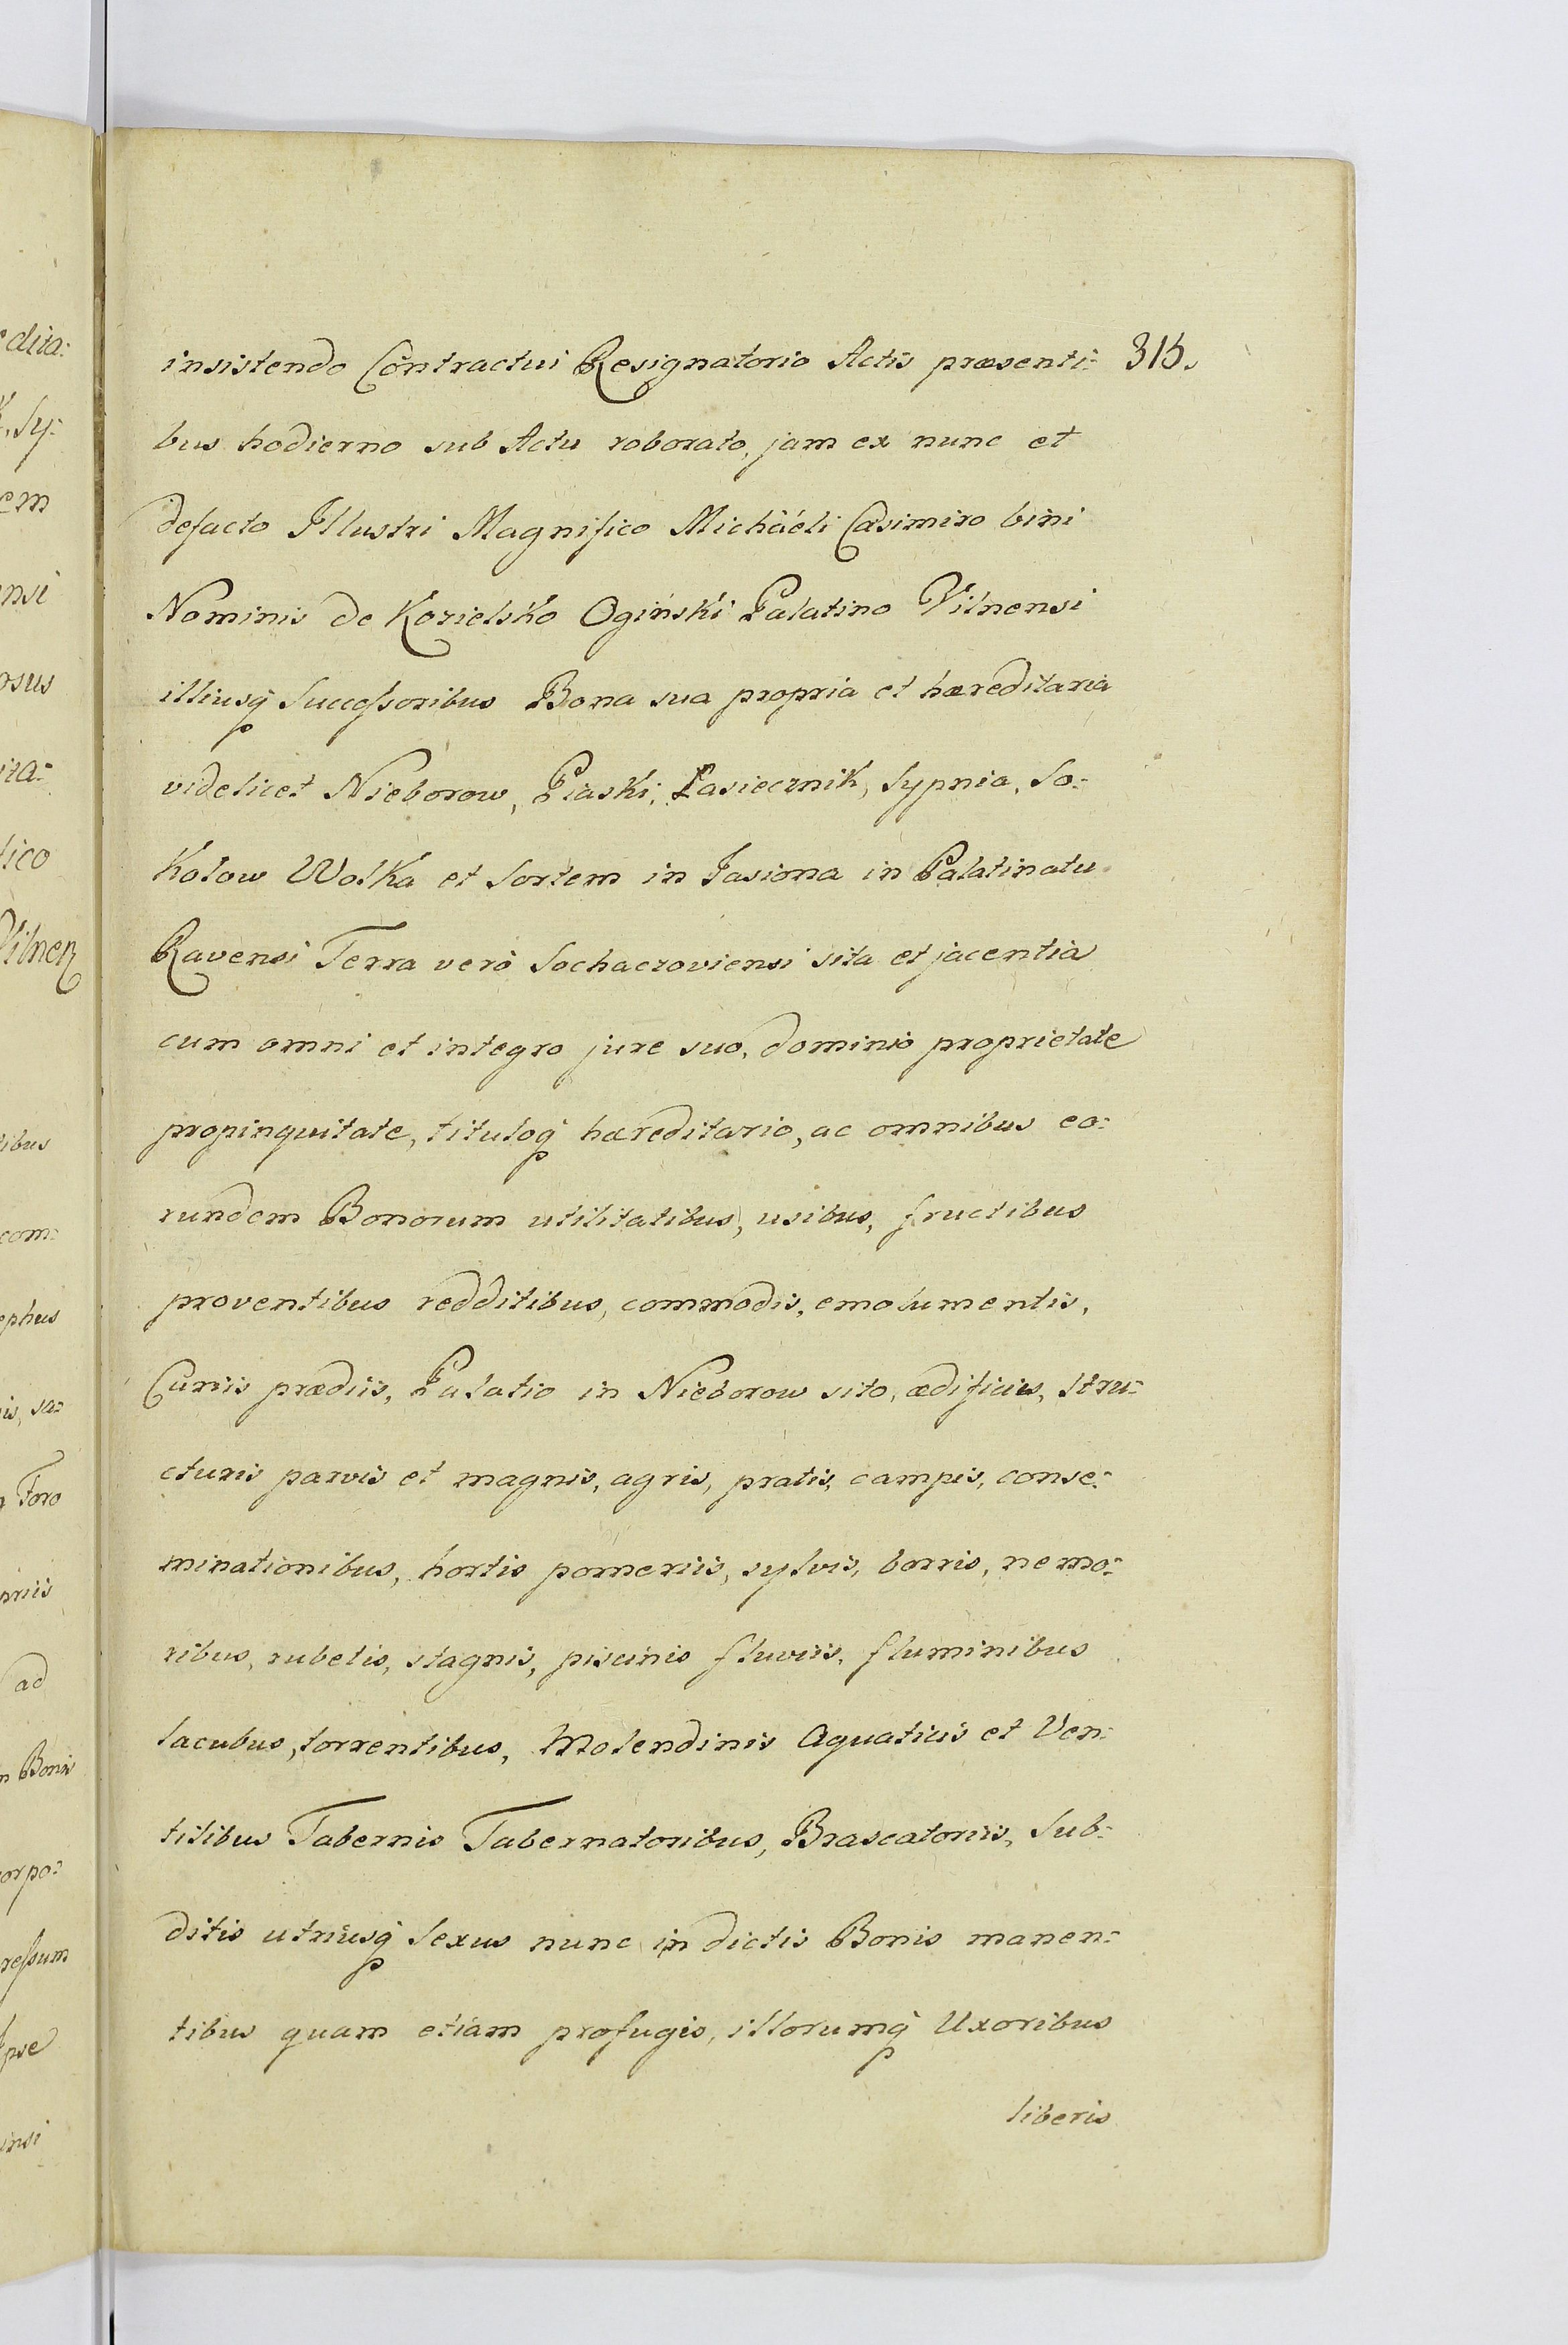 insistendo Contractui Resignatorio Actis præsenti= 315.
bus hodierno sub Actu roborato, jam ex nunc et
defacto Illustri Magnifico Michaeli Casimiro bini
Nominis de Kozielsko Ogiński Palatino Vilnensi
illiusq; Successoribus Bona sua propria et hæreditaria
videlicet Nieborow, Piaski, Pasiecznik, Sypnia, So=
kolow Wolka et Sortem in Jasiona in Palatinatu
Ravensi Terra verò Sochaczoviensi sita et jacentia
cum omni et integro jure suo, dominio proprietate
propinquitate, tituloq; hæreditario, ac omnibus eo=
rundem Bonorum utilitatibus, usibus, fructibus
proventibus redditibus, commodis, emolumentis,
Curiis prædiis, Palatio in Nieborow sito, ædificiis, Stru=
cturis parvis et magnis, agris, pratis, campis, conse=
minationibus, hortis pomeriis, sylvis, borris, nemo=
ribus, rubetis, stagnis, piscinis fluviis, fluminibus
lacubus, torrentibus, Molendinis Aquaticis et Ven=
tilibus Tabernis Tabernatoribus, Brascatoriis, Sub=
ditis utriusq; Sexus nunc in dictis Bonis manen=
tibus quam etiam profugis, illorumq; Uxoribus
liberis
dita=
Sy=
em
nsi
osus
ita=
fico
Vilnen
tibus
com=
ephus
is, sa=
Foro
ad
n Bonis
corpo=
ressum
Ipse
ensi